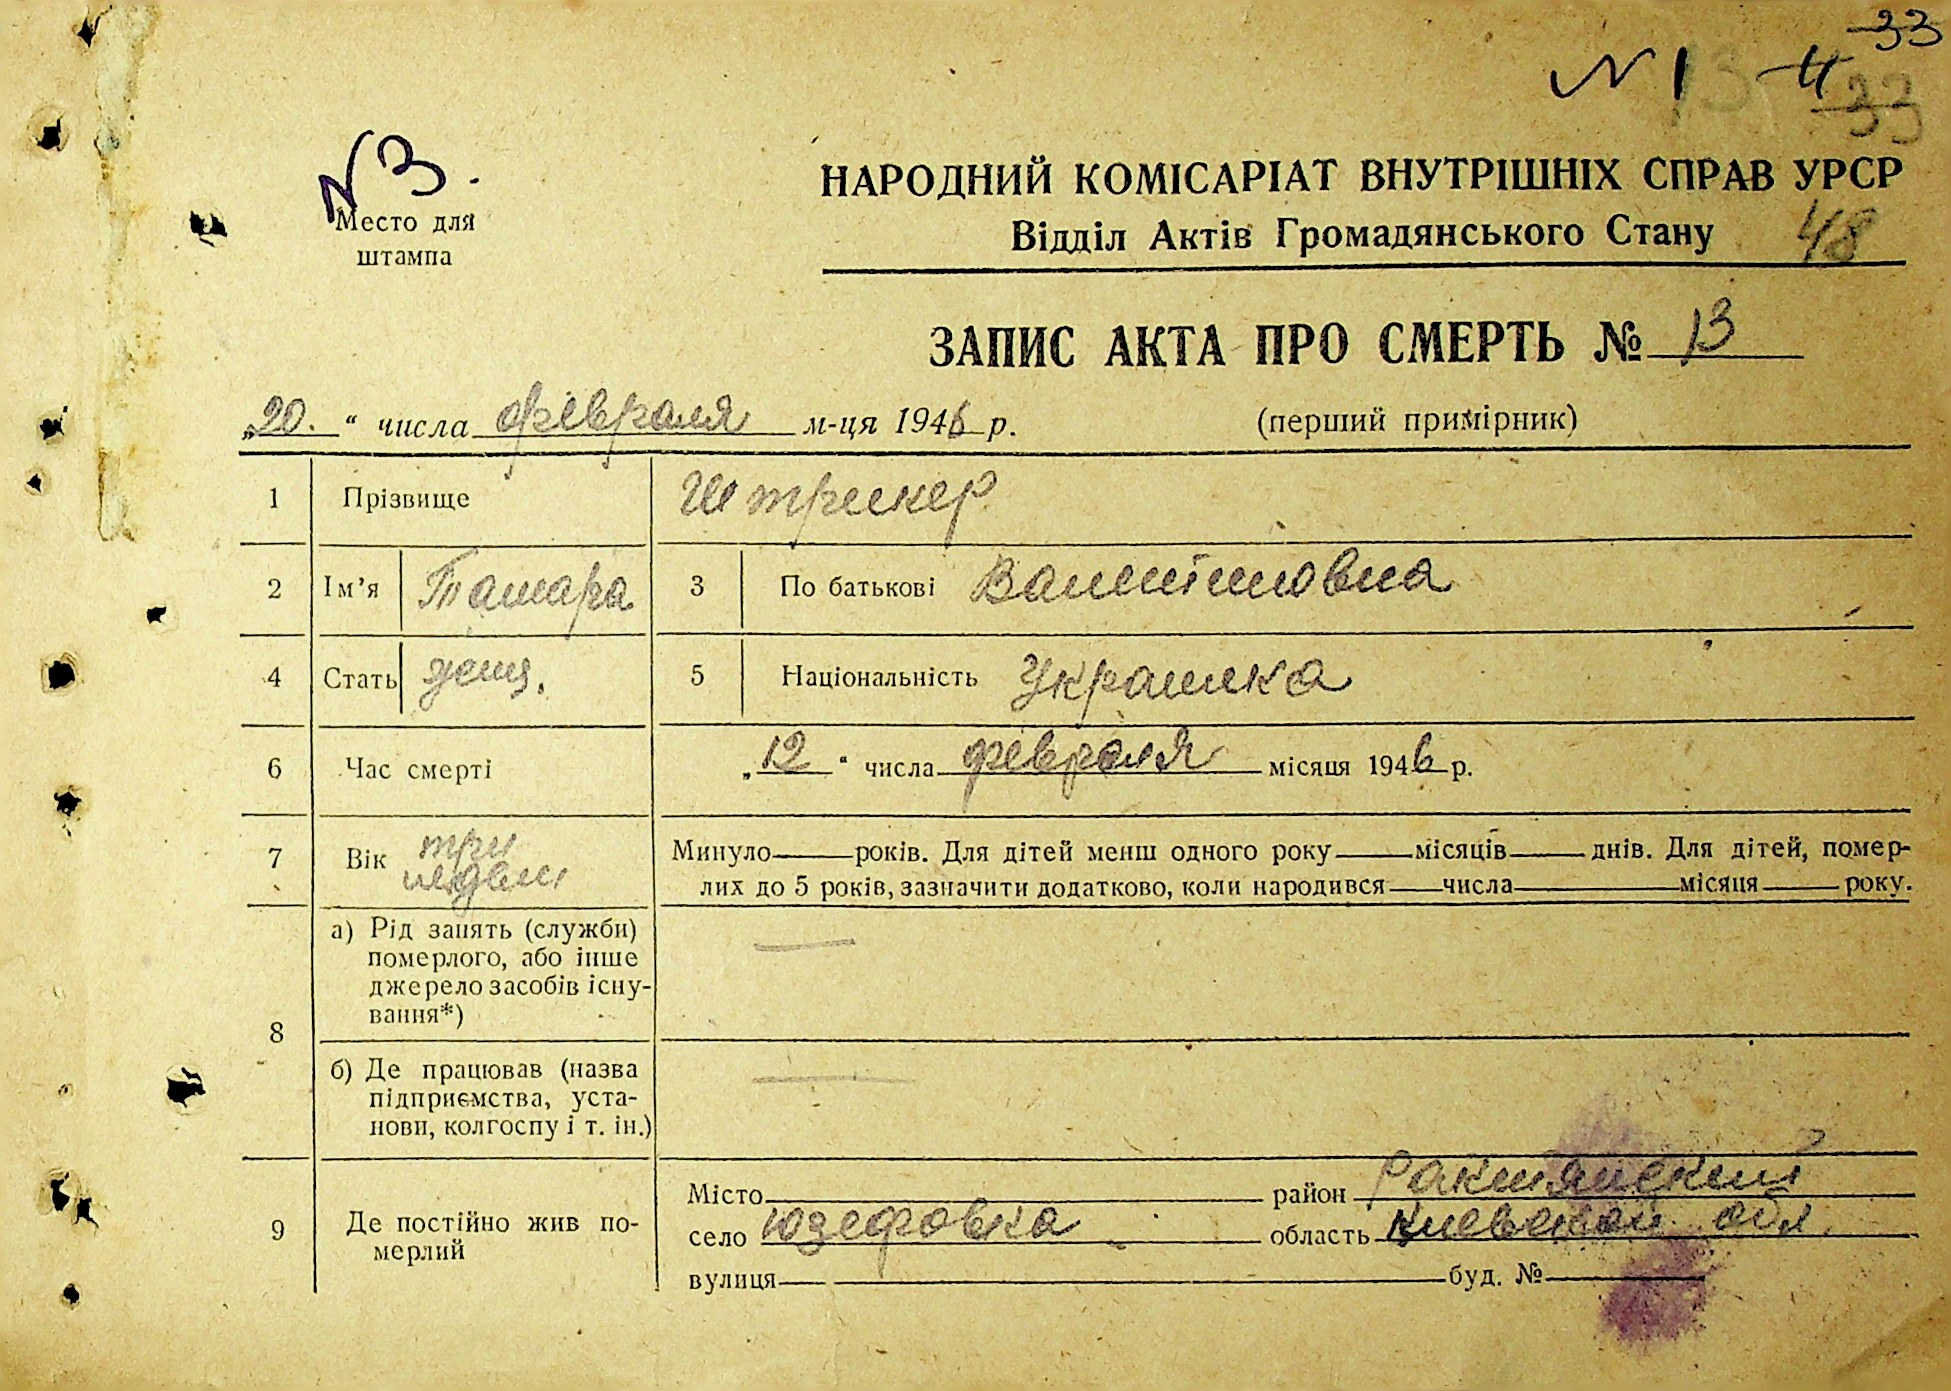 33
N 1 4
33
N 3.
Место для
штампа
НАРОДНИЙ КОМІСАРІАТ ВНУТРІШНІХ СПРАВ УРСР
Відділ Актів Громадянського Стану
48
ЗАПИС АКТА ПРО СМЕРТЬ № 13
„20.“ числа февраля м-ця 1946 р. (перший примірник)
1 Прізвище Штрикер
2 Ім’я Тамара 3 По батькові Валентиновна
4 Стать женщ. 5 Національність Украинка
6 Час смерті „12“ числа февраля місяця 1946 р.
7 Вік три недели
Минуло — років. Для дітей менш одного року — місяців — днів. Для дітей, помер-
лих до 5 років, зазначити додатково, коли народився — числа — місяця — року.
8
а) Рід занять (служби)
померлого, або інше
джерело засобів існу-
вання*)
—
б) Де працював (назва
підприємства, уста-
нови, колгоспу і т. ін.)
—
9 Де постійно жив по-
мерлий
Місто район Ракитянский
село Юзефовка область Киевской обл.
вулиця буд. №